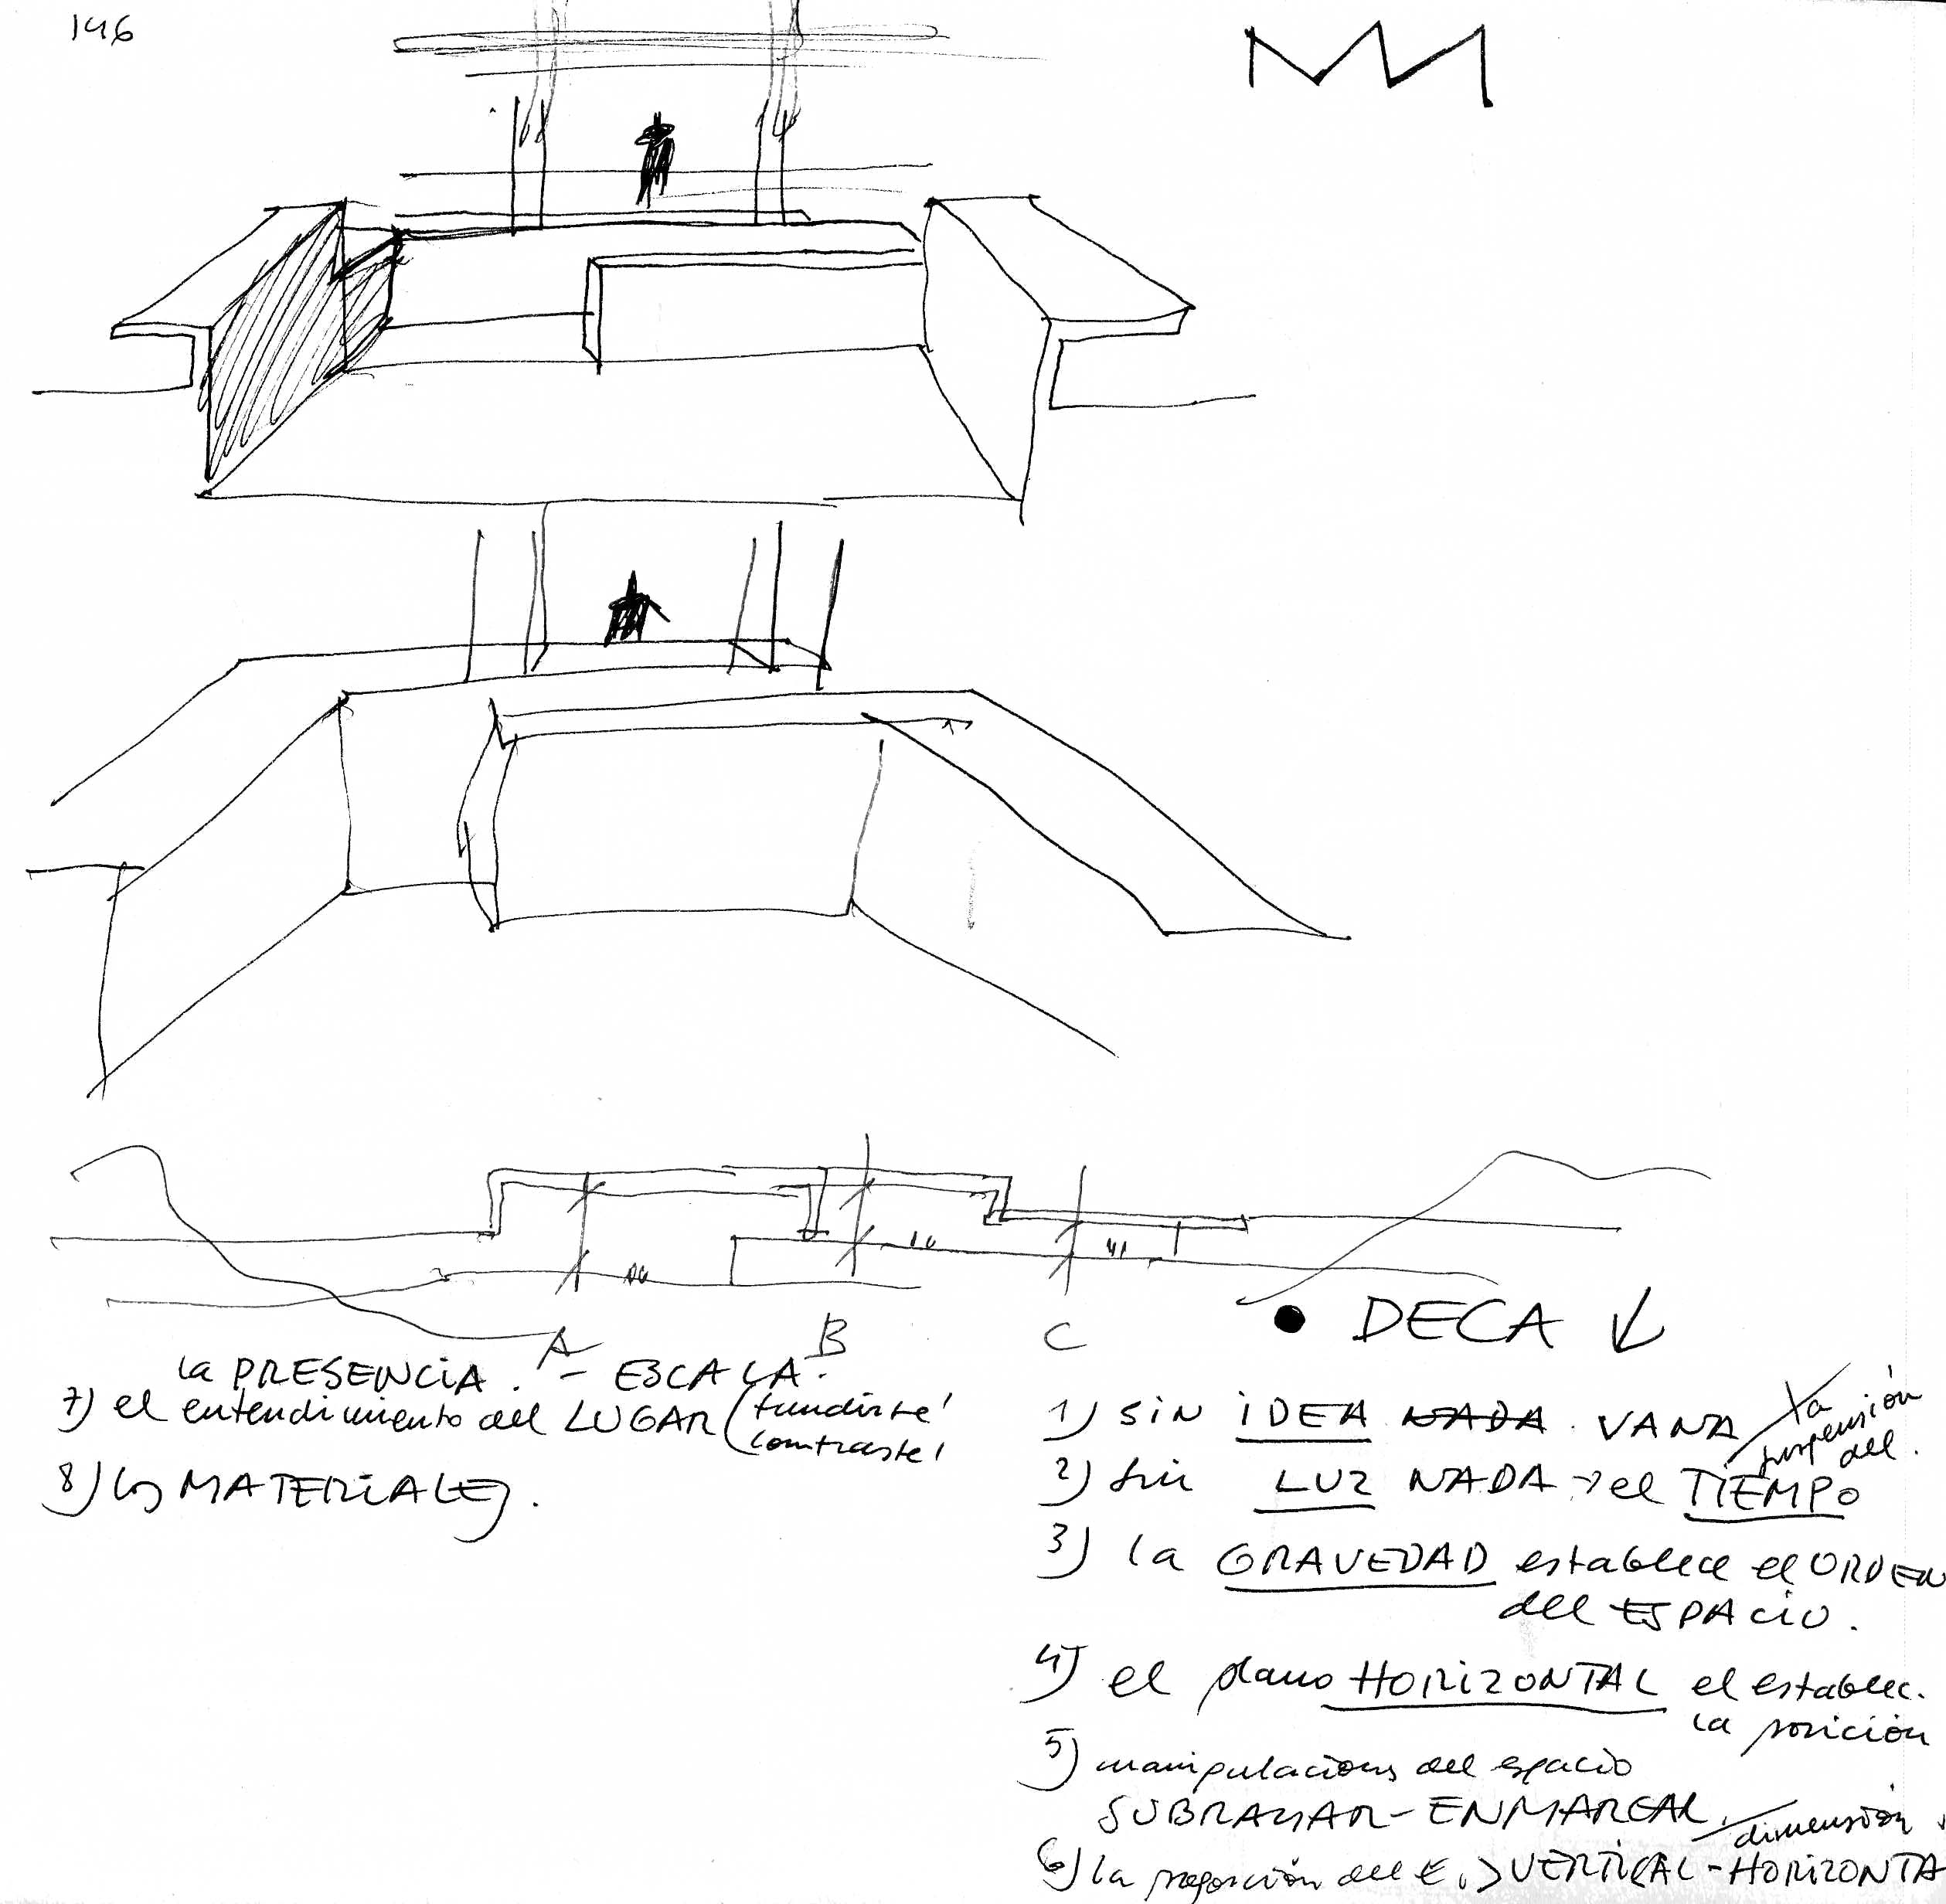 146
A B C
• DECA ↓
la PRESENCIA. - ESCALA.
7) el entendimiento del LUGAR (fundirse
contraste
8) los MATERIALES.
1) SIN IDEA NADA. VANA
2) sin LUZ NADA → el TIEMPO
la
suspensión
del.
3) la GRAVEDAD establece el ORDEN
del ESPACIO.
4) el plano HORIZONTAL el establec.
la posición
5) manipulacions del espacio
SUBRAYAR - ENMARCAR.
dimensión
6) la proporción del E. > VERTICAL - HORIZONTA